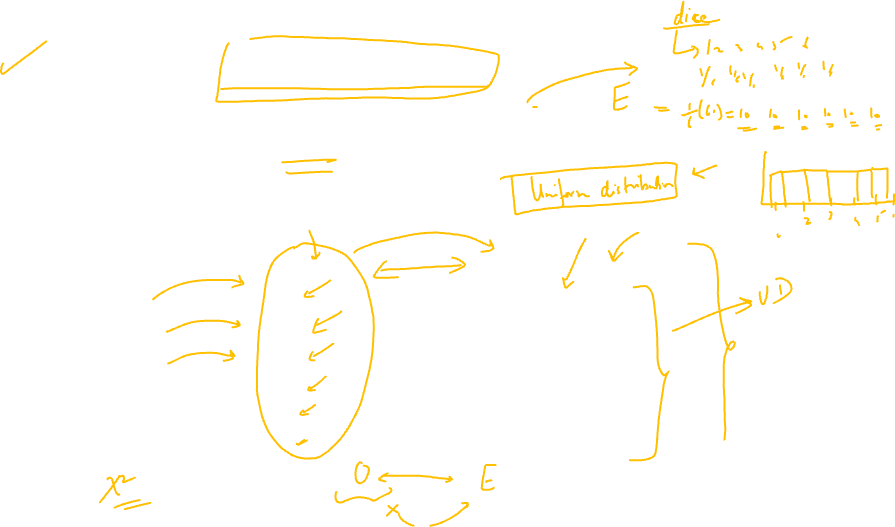 dice
1 2 3 4 5 6
1/6 1/6 1/6 1/6 1/6 1/6
E = 1/6(60) = 10 10 10 10 10 10
Uniform distribution
2 3 4 5
UD
O E
χ²